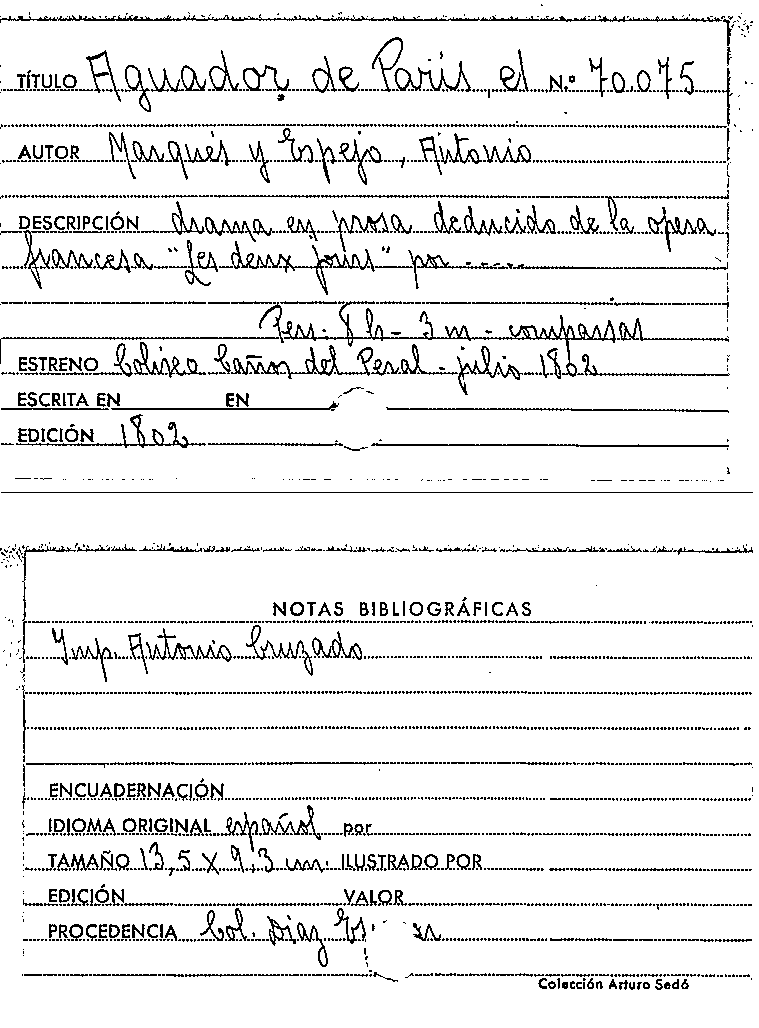 TÍTULO Aguador de París, el N.º 70.075
AUTOR Marqués y Espejo, Antonio
DESCRIPCIÓN drama en prosa deducido de la opera
francesa "Les deux jours" por -----
Pers. 8 h - 3 m - comparsas
ESTRENO Coliseo Caños del Peral - julio 1802
ESCRITA EN EN
EDICIÓN 1802
NOTAS BIBLIOGRÁFICAS
Imp. Antonio Cruzado
ENCUADERNACIÓN
IDIOMA ORIGINAL español por
TAMAÑO 13,5 X 9,3 cm. ILUSTRADO POR
EDICIÓN VALOR
PROCEDENCIA Col. Díaz
Colección Arturo Sedó